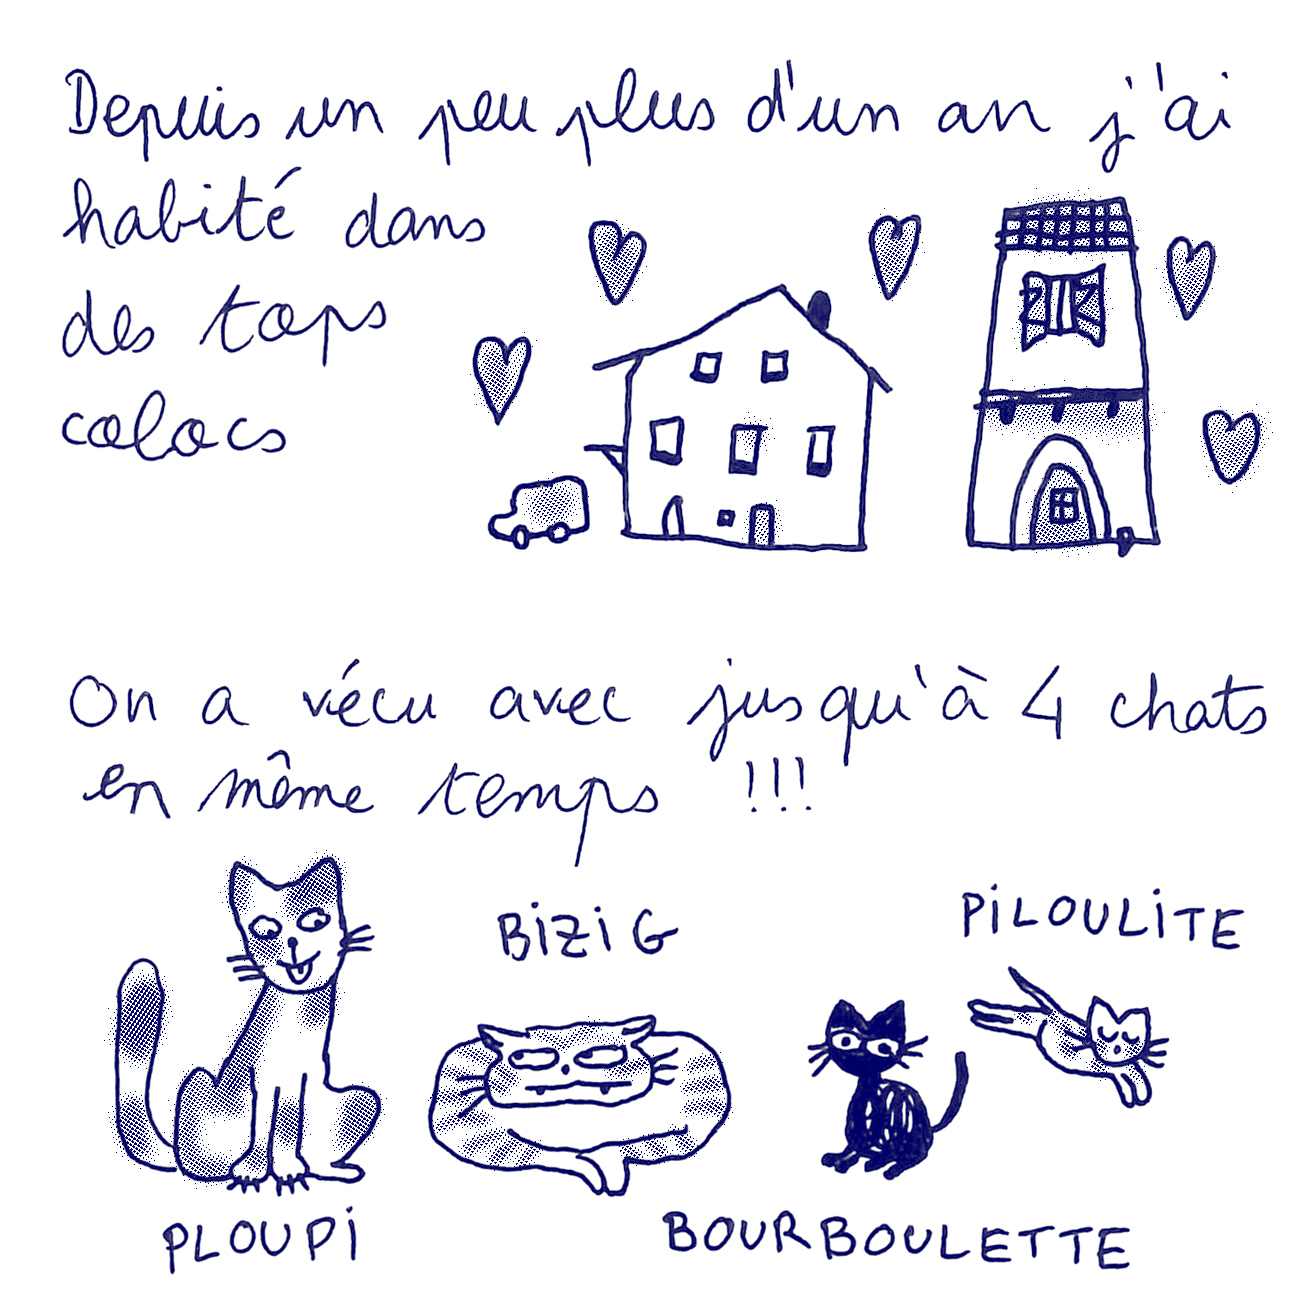 Depuis un peu plus d'un an j'ai
habité dans
des tops
colocs
On a vécu avec jusqu'à 4 chats
en même temps !!!
PiLOULiTE
BiZiG
PLOUPi
BOURBOULETTE